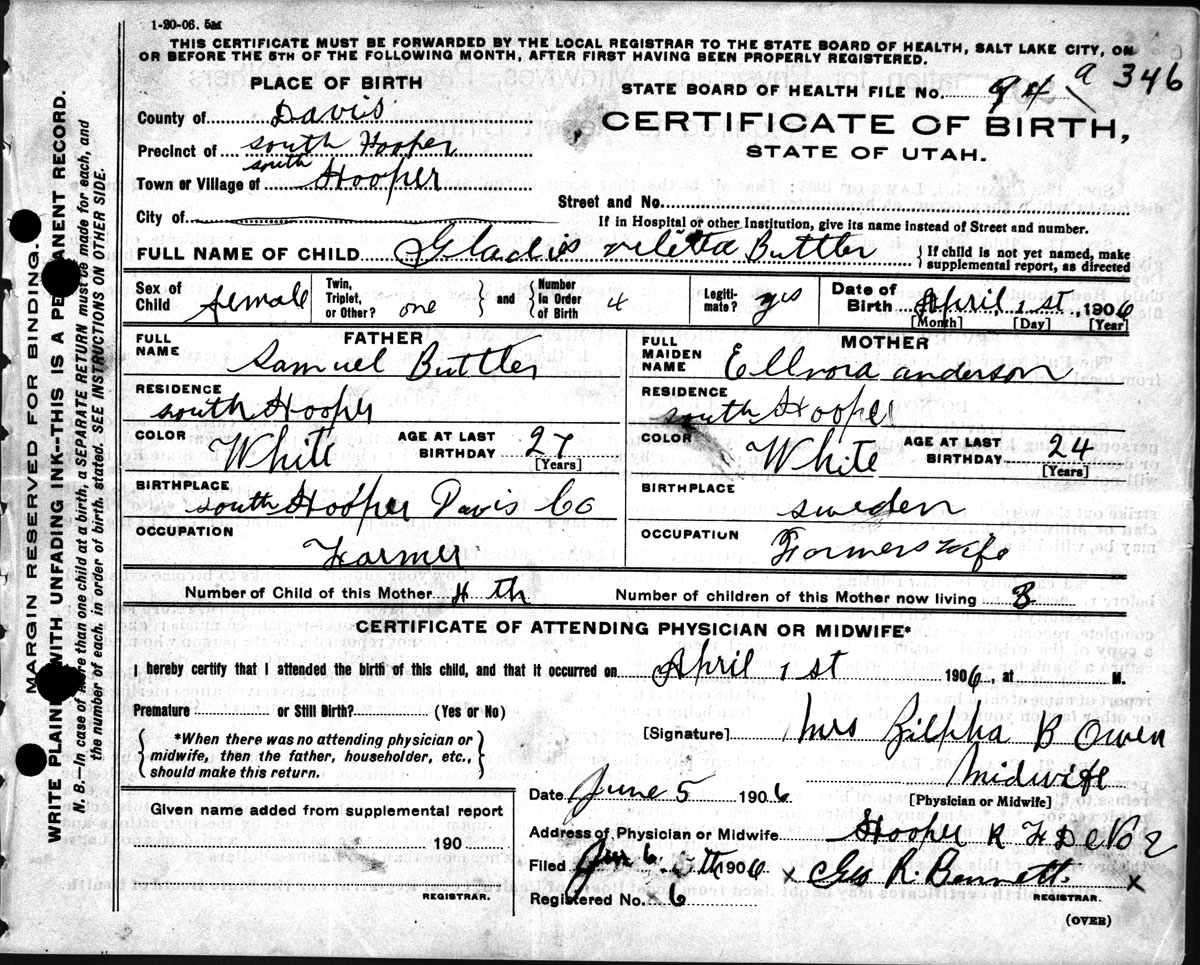 1-20-06. 5M
THIS CERTIFICATE MUST BE FORWARDED BY THE LOCAL REGISTRAR TO THE STATE BOARD OF HEALTH, SALT LAKE CITY, ON
OR BEFORE THE 5TH OF THE FOLLOWING MONTH, AFTER FIRST HAVING BEEN PROPERLY REGISTERED.
PLACE OF BIRTH
STATE BOARD OF HEALTH FILE No. 94 a 346
County of Davis
CERTIFICATE OF BIRTH,
STATE OF UTAH.
Precinct of south Hooper
Town or Village of south Hooper
Street and No.
City of
If in Hospital or other Institution, give its name instead of Street and number.
FULL NAME OF CHILD Gladis Buttler { If child is not yet named, make supplemental report, as directed
Sex of Child female Twin, Triplet, or Other? one } and { Number In Order of Birth 4 Legiti- mate? yes Date of Birth April 1st, 1906
[Month] [Day] [Year]
FATHER
FULL NAME Samuel Buttler
RESIDENCE
south Hooper
COLOR White AGE AT LAST BIRTHDAY 27
[Years]
BIRTHPLACE
south Hooper Davis Co
OCCUPATION
Farmer
MOTHER
FULL MAIDEN NAME Ellnora anderson
RESIDENCE
south Hooper
COLOR White AGE AT LAST BIRTHDAY 24
[Years]
BIRTHPLACE
sweden
OCCUPATION
Farmers wife
Number of Child of this Mother 4th Number of children of this Mother now living 3
CERTIFICATE OF ATTENDING PHYSICIAN OR MIDWIFE*
I hereby certify that I attended the birth of this child, and that it occurred on April 1st 1906, at M.
Premature or Still Birth? (Yes or No)
{ *When there was no attending physician or
midwife, then the father, householder, etc.,
should make this return. }
[Signature] Mrs Zilpha B Owen
Midwife
[Physician or Midwife]
Date June 5 1906
Given name added from supplemental report
190
REGISTRAR.
Address of Physician or Midwife Hooper R F D No 2
Filed Jun 6 1906 x Geo R. Bennett. x
Registered No. 6 REGISTRAR.
(OVER)
MARGIN RESERVED FOR BINDING.
WRITE PLAINLY WITH UNFADING INK--THIS IS A PERMANENT RECORD.
N. B.—In case of more than one child at birth, a SEPARATE RETURN must be made for each, and
the number of each, in order of birth, stated. SEE INSTRUCTIONS ON OTHER SIDE.